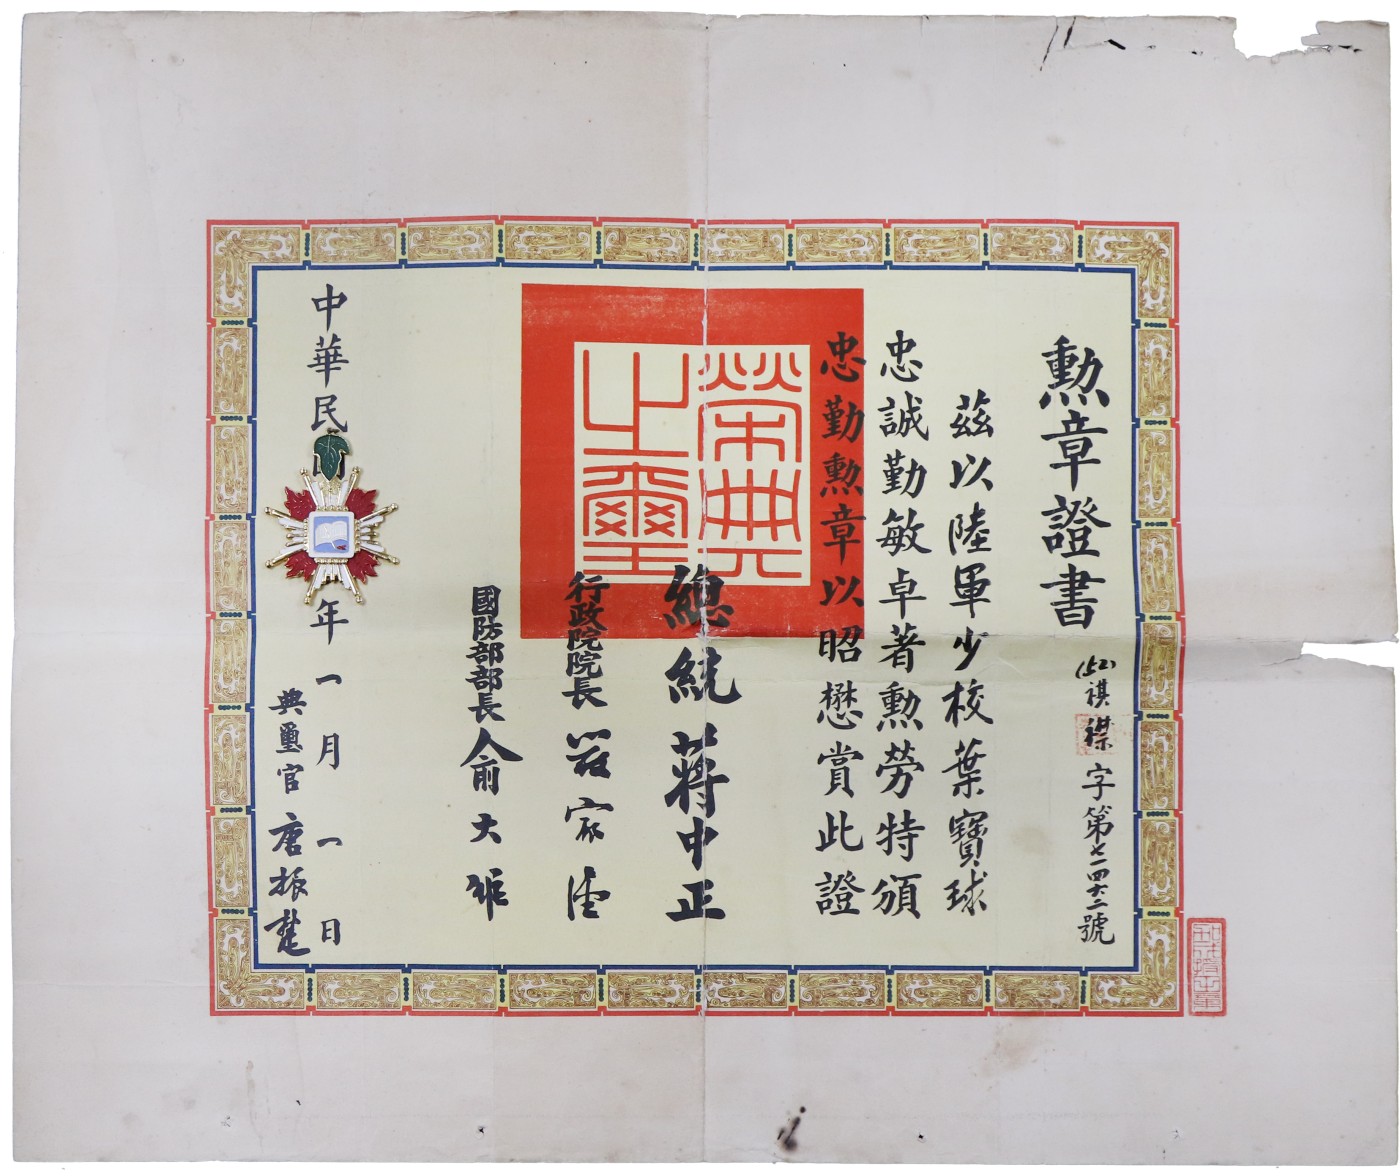 勲章證書
(52)祺襟字第七一四六二號
茲以陸軍少校葉寶球
忠誠勤敏卓著勲勞特頒
忠勤勲章以昭懋賞此證
榮典之璽
總統蔣中正
行政院院長嚴家淦
國防部部長俞大維
中華民
年一月一日
典璽官唐振楚